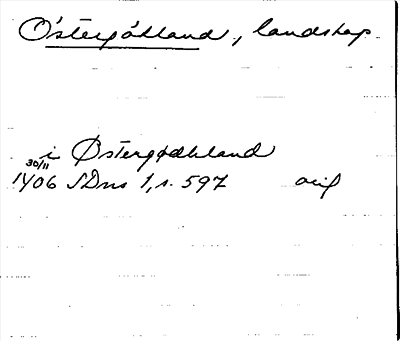 Östergötland, landskap
i Østergødhland
30/11
1406 SDns 1, s. 597 orig